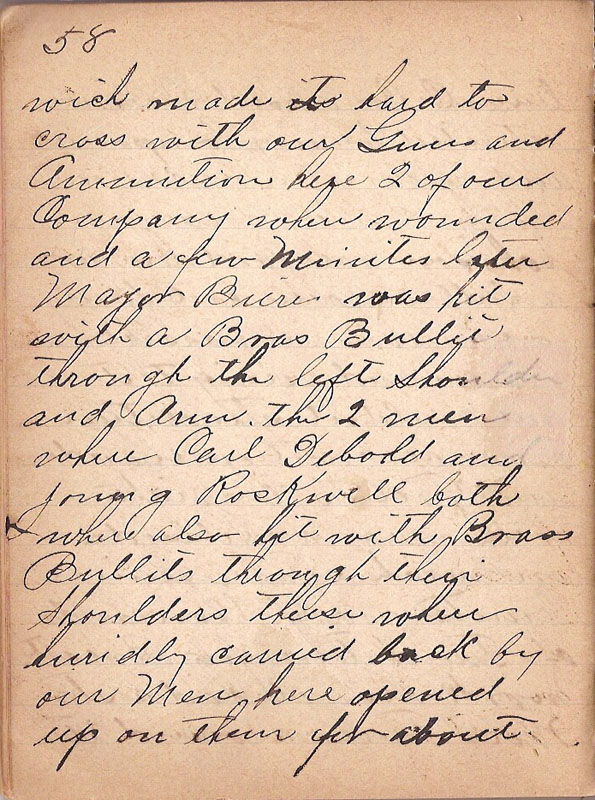 58
wich made its hard to
cross with our Guns and
Ammunition here 2 of our
Company where wounded
and a few Minites later
Mayor was hit
with a Bras Bullit
through the left Shoulder
and Arm. the 2 men
where Carl Debold and
young Roskwell both
where also hit with Brass
Bullits through their
Shoulders these where
huridly carried back by
our Men, here opened
up on them for about